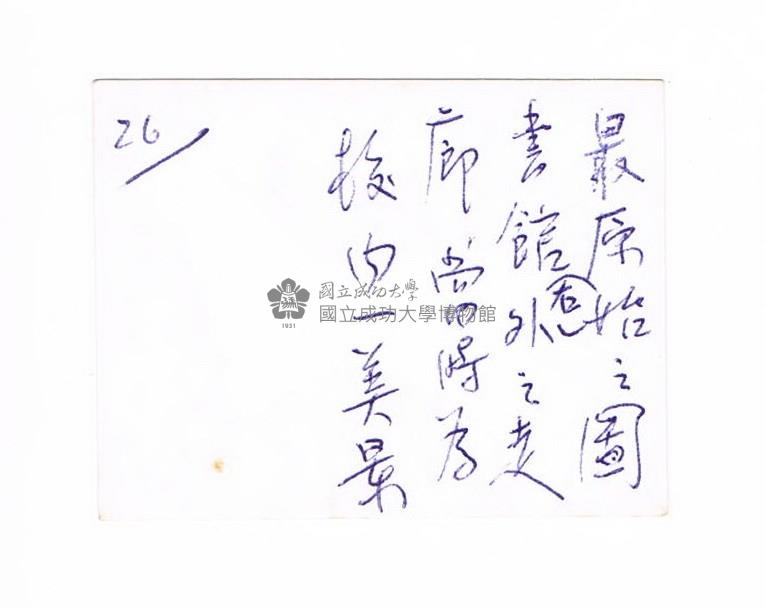 最原始之圖
書館外之走
廊當時為
校內一美景
26
國立成功大學
國立成功大學博物館
1931